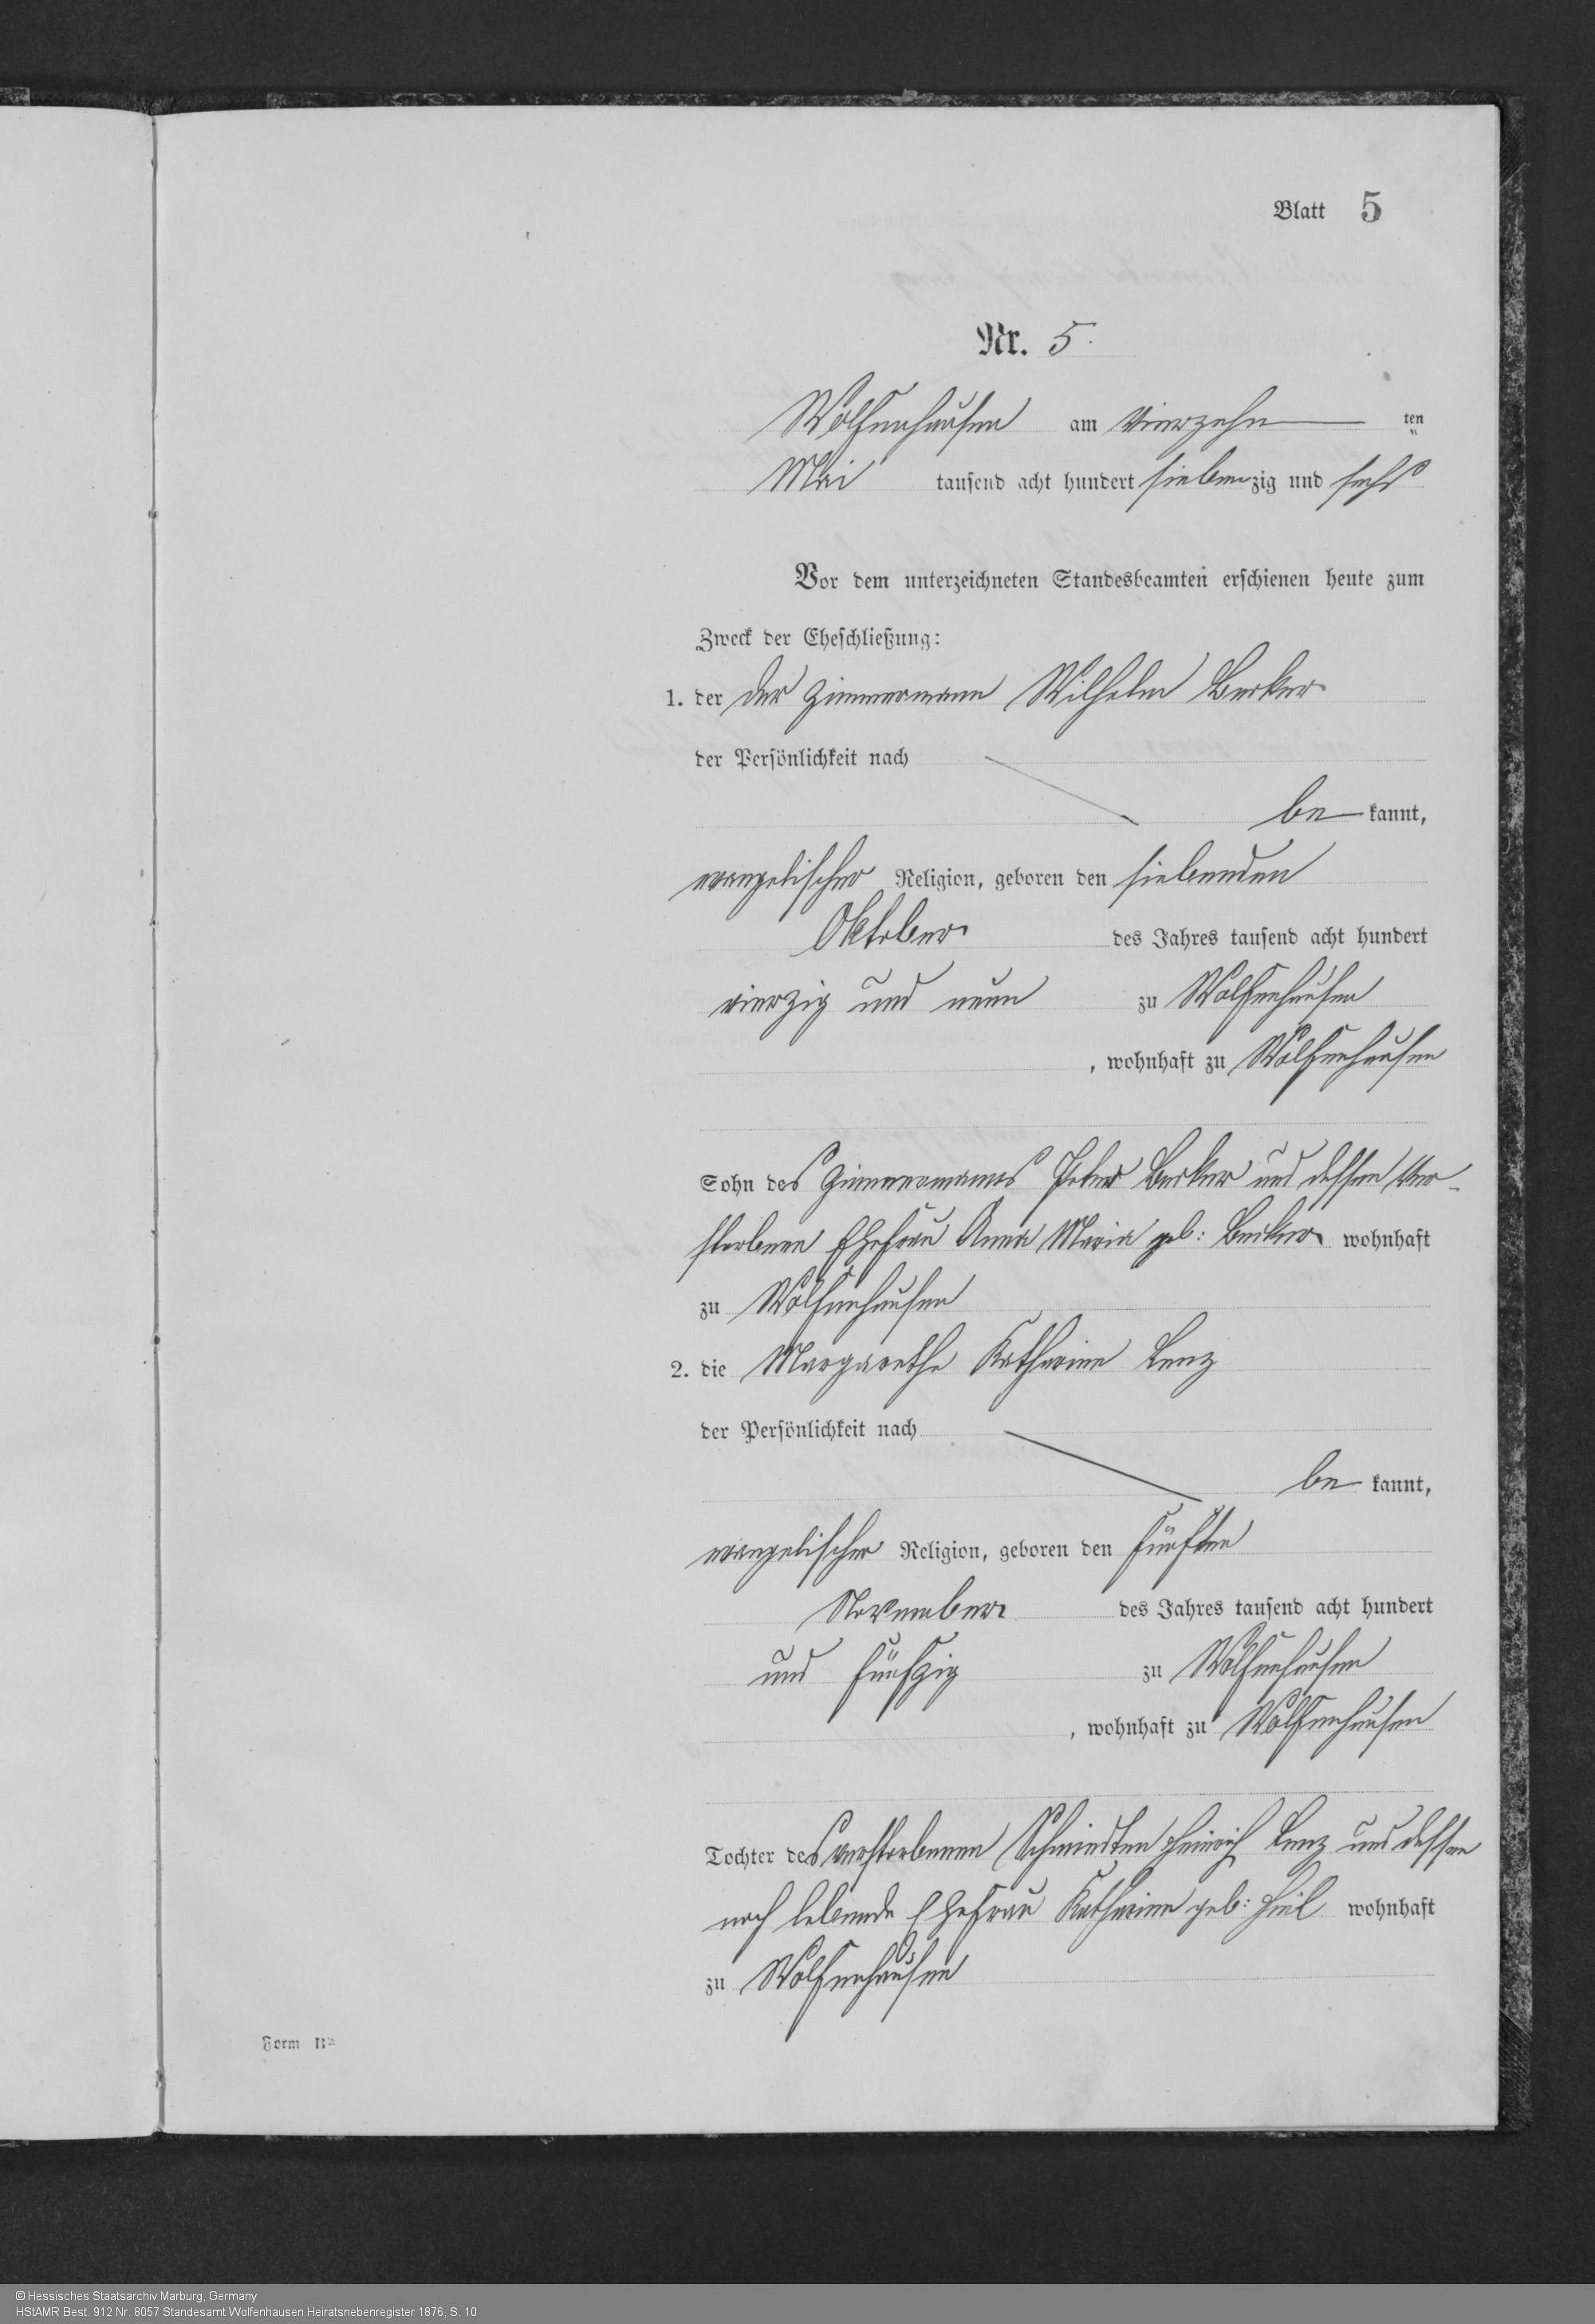 Blatt 5
Nr. 5.
Wolfenhausen am Vierzehn ten
Mai tausend acht hundert siebenzig und sechs
Vor dem unterzeichneten Standesbeamten erschienen heute zum
Zweck der Eheschließung:
1. der der Zimmermann Wilhelm Becker
der Persönlichkeit nach
be kannt,
evangelischer Religion, geboren den siebenden
Oktober des Jahres tausend acht hundert
vierzig und neun zu Wolfenhausen
, wohnhaft zu Wolfenhausen
Sohn des Zimmermanns Peter Becker und dessen ver-
storbenen Ehefrau Anna Maria geb: Becker wohnhaft
zu Wolfenhausen
2. die Margarethe Katharine Lenz
der Persönlichkeit nach
be kannt,
evangelischer Religion, geboren den fünften
November des Jahres tausend acht hundert
und fünfzig zu Wolfenhausen
, wohnhaft zu Wolfenhausen
Tochter des verstorbenen Heinrich Lenz und dessen
noch lebende Ehefrau Katharine geb: wohnhaft
zu Wolfenhausen
Form B
© Hessisches Staatsarchiv Marburg, Germany
HStAMR Best. 912 Nr. 8057 Standesamt Wolfenhausen Heiratsnebenregister 1876, S. 10